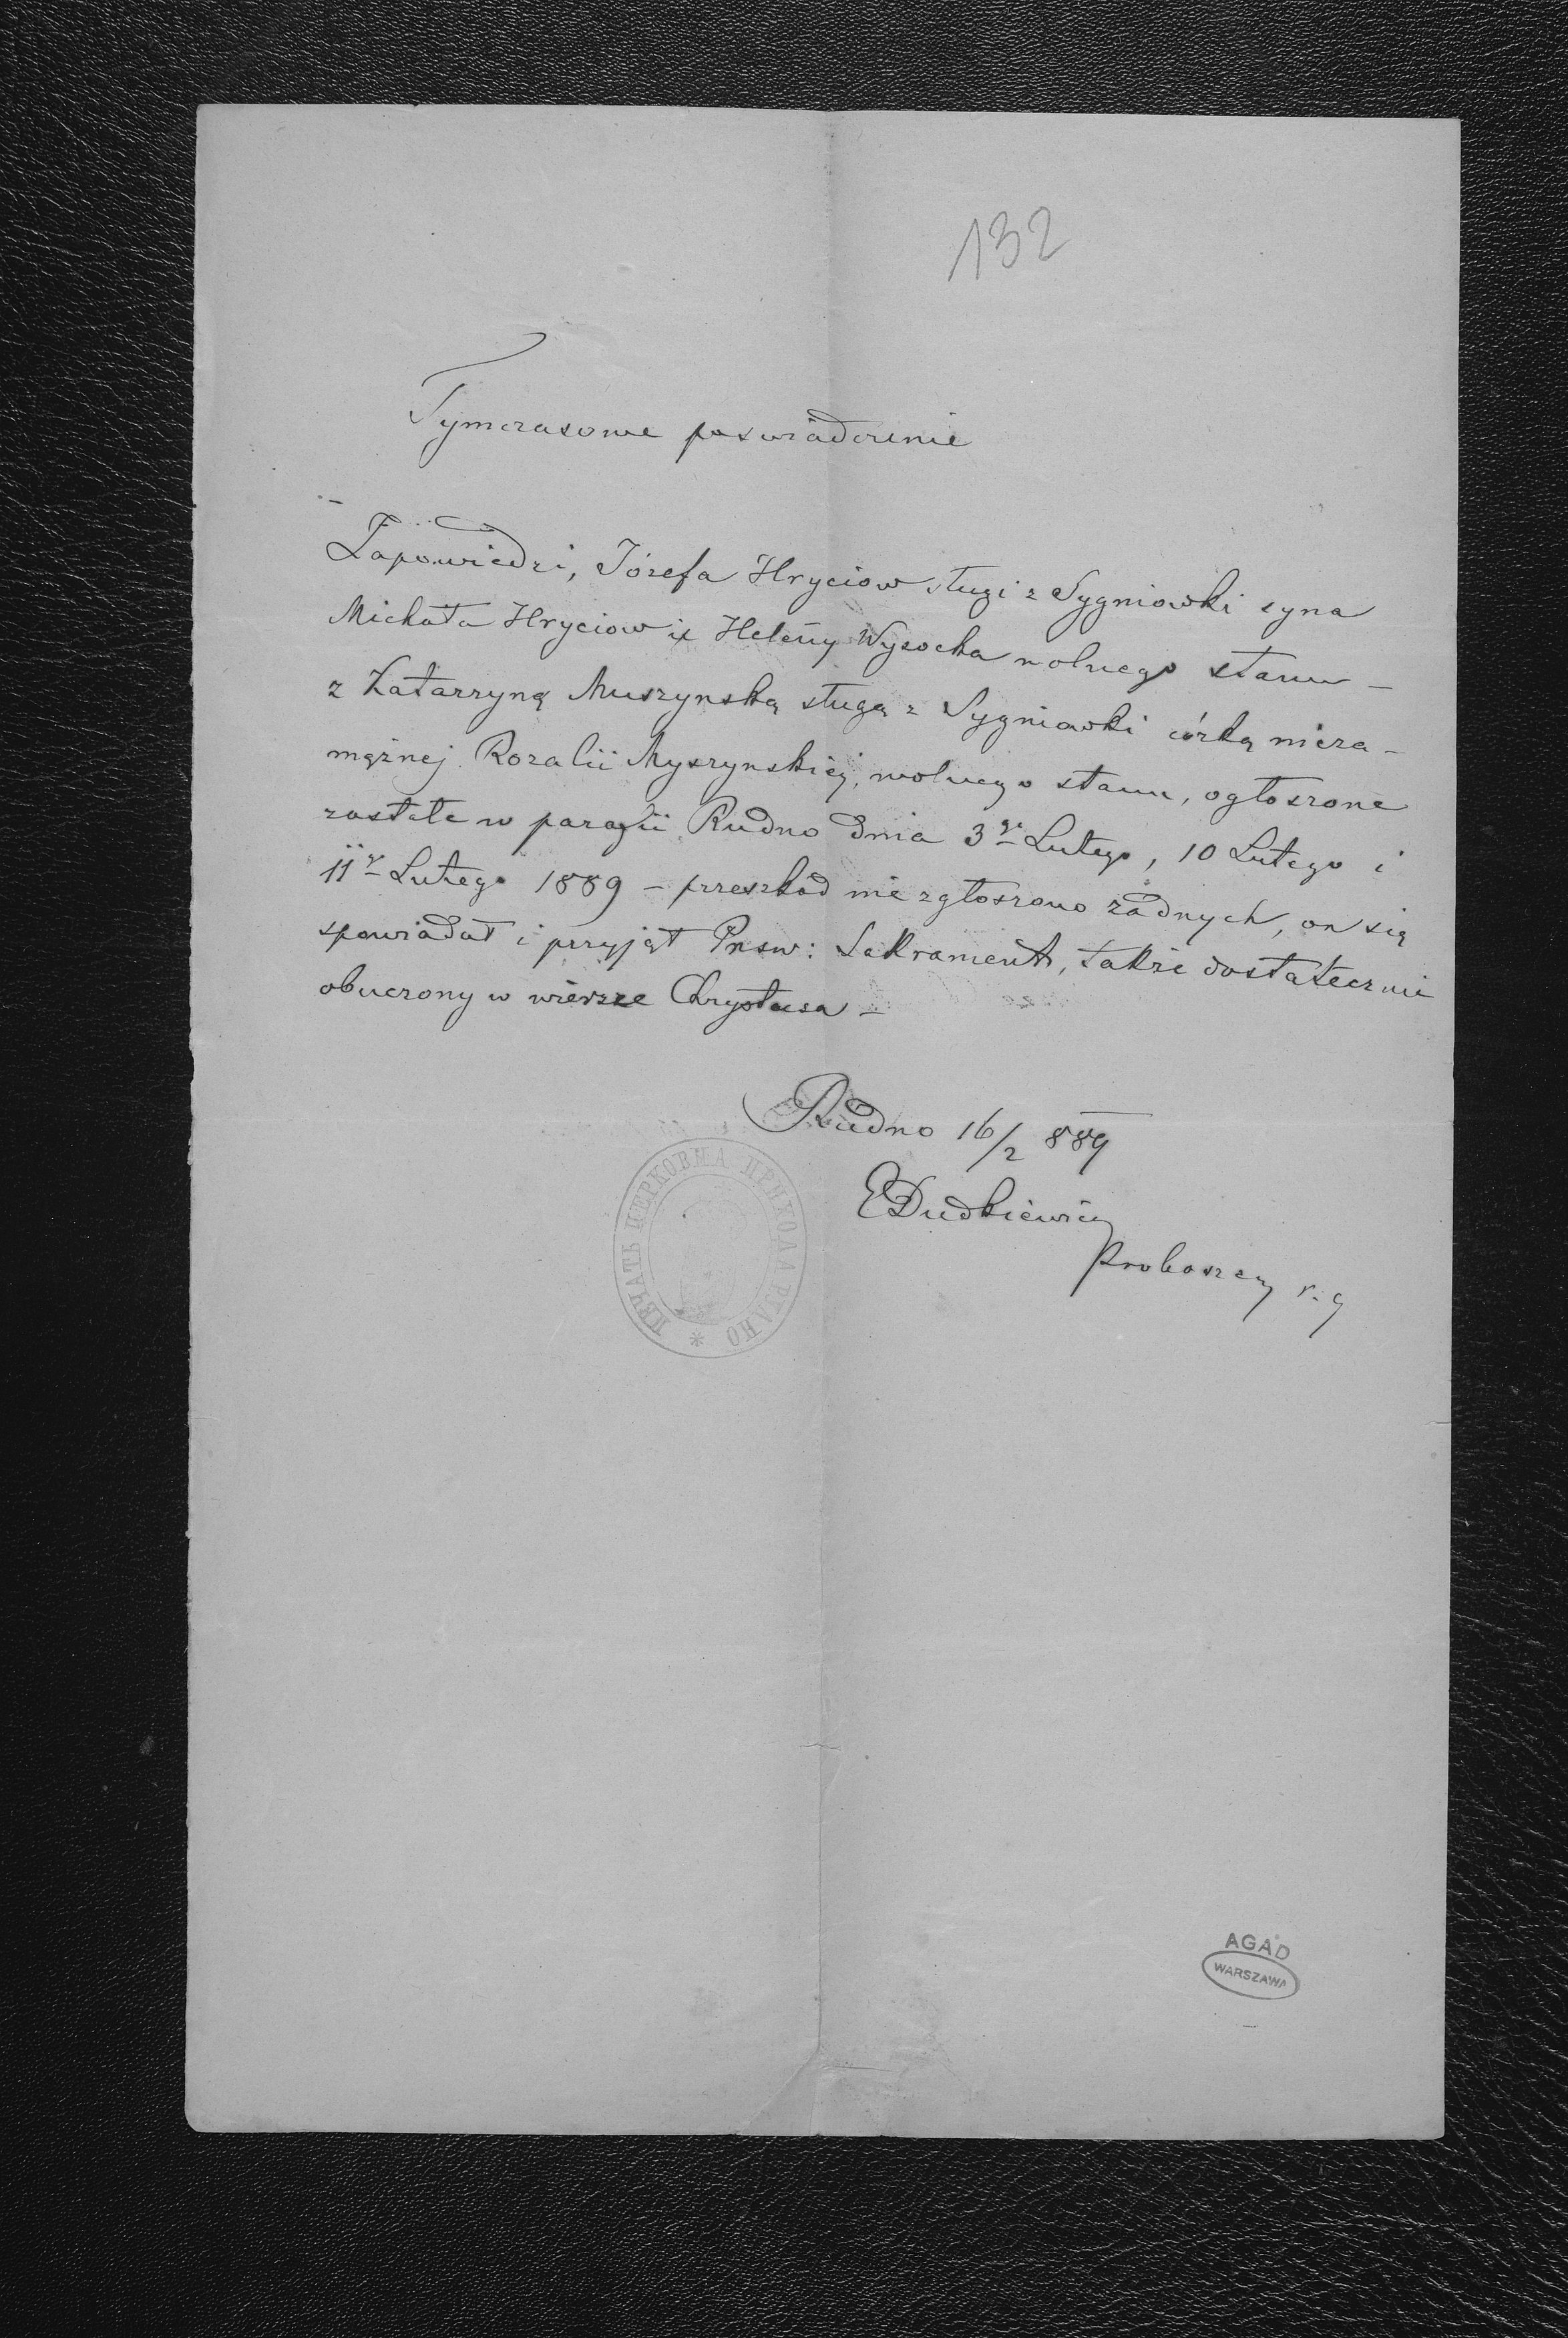 132
Tymczasowe poswiadczenie
Zapowiedzi, Józefa Hryciow sługi z Sygniowki syna
Michała Hryciow i Heleny Wysocka wolnego stanu –
z Katarzyną Muszynską sługą z Sygniowki córką nieza-
mężnej Rozalii Myszynskiej, wolnego stanu, ogłoszone
zostałe w parafii Rudno dnia 3go Lutego, 10 Lutego i
11go Lutego 1889 – przeszkód nie zgłoszono żadnych, on się
spowiadał i przyjął Prsw: Sakrament, także dostatecznie
obuczony w wierze Chrystusa –
Rudno 16/2 889
EDudkiewicz
Proboszcz r. g
ПЕЧАТЬ ЦЕРКОВНА ПРИХОДА РУДНО *
AGAD
WARSZAWA